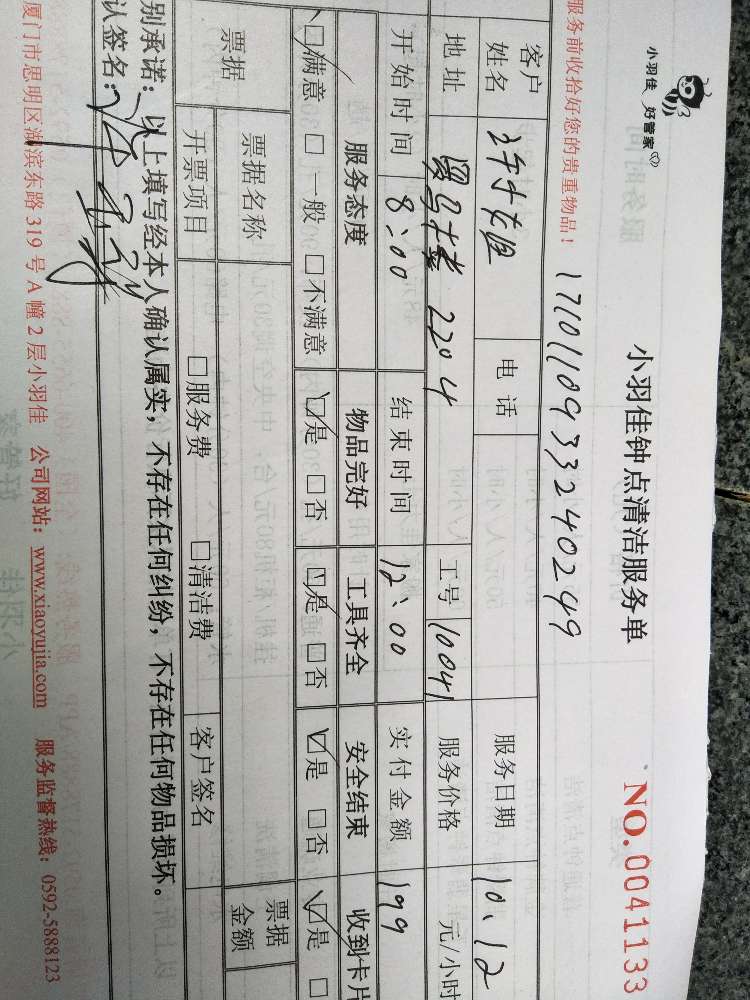 小羽佳 好管家
小羽佳钟点清洁服务单
NO.0041133
服务前收拾好您的贵重物品！
1710110933240249
客户姓名 电话 服务日期 10.12
地址 罗马大楼 2204 工号 10041 服务价格 元/小时
开始时间 8:00 结束时间 12:00 实付金额 199
服务态度 物品完好 工具齐全 安全结束 收到卡片
☑满意 □一般 □不满意 ☑是 □否 ☑是 □否 ☑是 □否 ☑是 □
票据 票据名称 票据金额
开票项目 □服务费 □清洁费 客户签名
别承诺：以上填写经本人确认属实，不存在任何纠纷，不存在任何物品损坏。
认签名：
厦门市思明区湖滨东路 319 号 A 幢 2 层小羽佳 公司网站：www.xiaoyujia.com 服务监督热线：0592-5888123